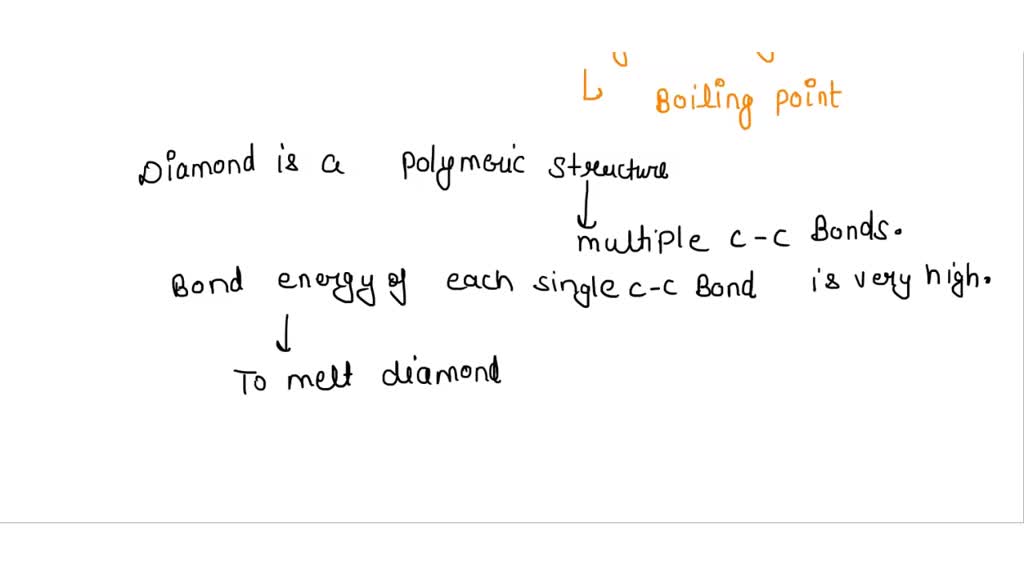 Boiling point
Diamond is a polymeric structure
multiple c-c Bonds.
Bond energy of each single c-c Bond is very high.
To melt diamond